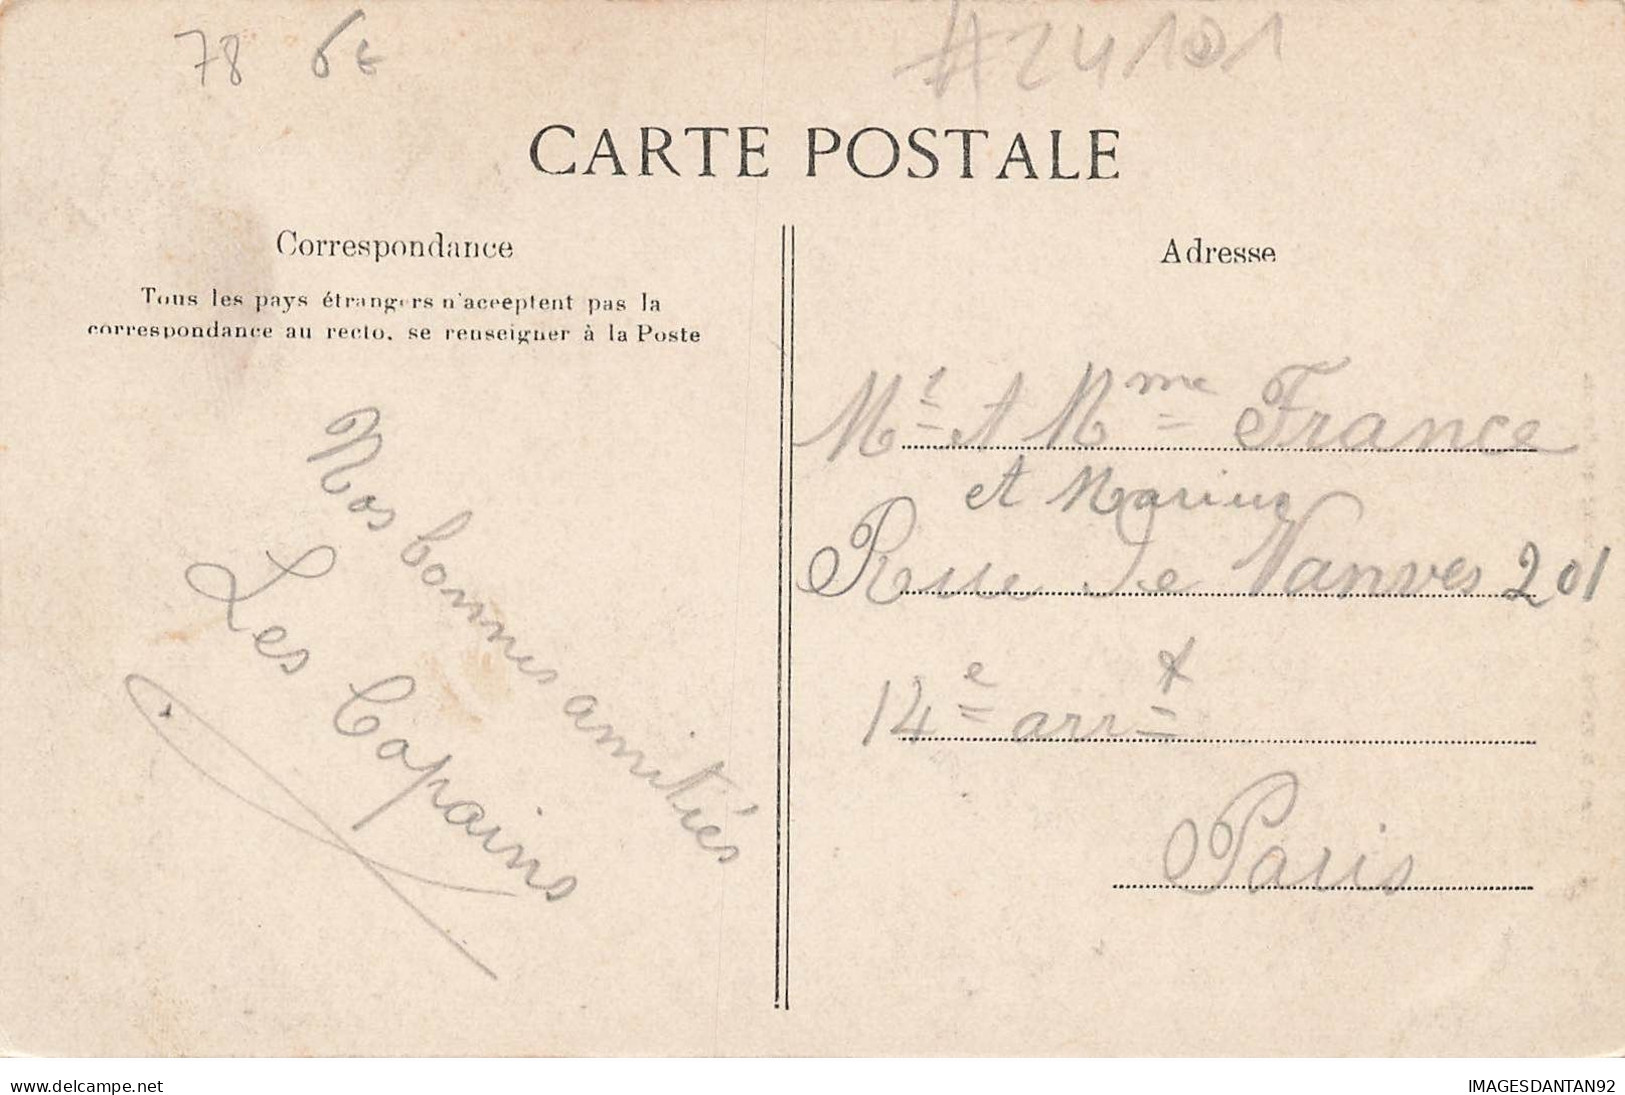 78 6€
#24101
CARTE POSTALE
Correspondance
Tous les pays étrangers n'acceptent pas la
correspondance au recto, se renseigner à la Poste
Nos bonnes amitiés
Les Copains
Adresse
Mr et Mme France
et Marius
Rue de Vanves 201
14e arrt
Paris
www.delcampe.net
IMAGESDANTAN92